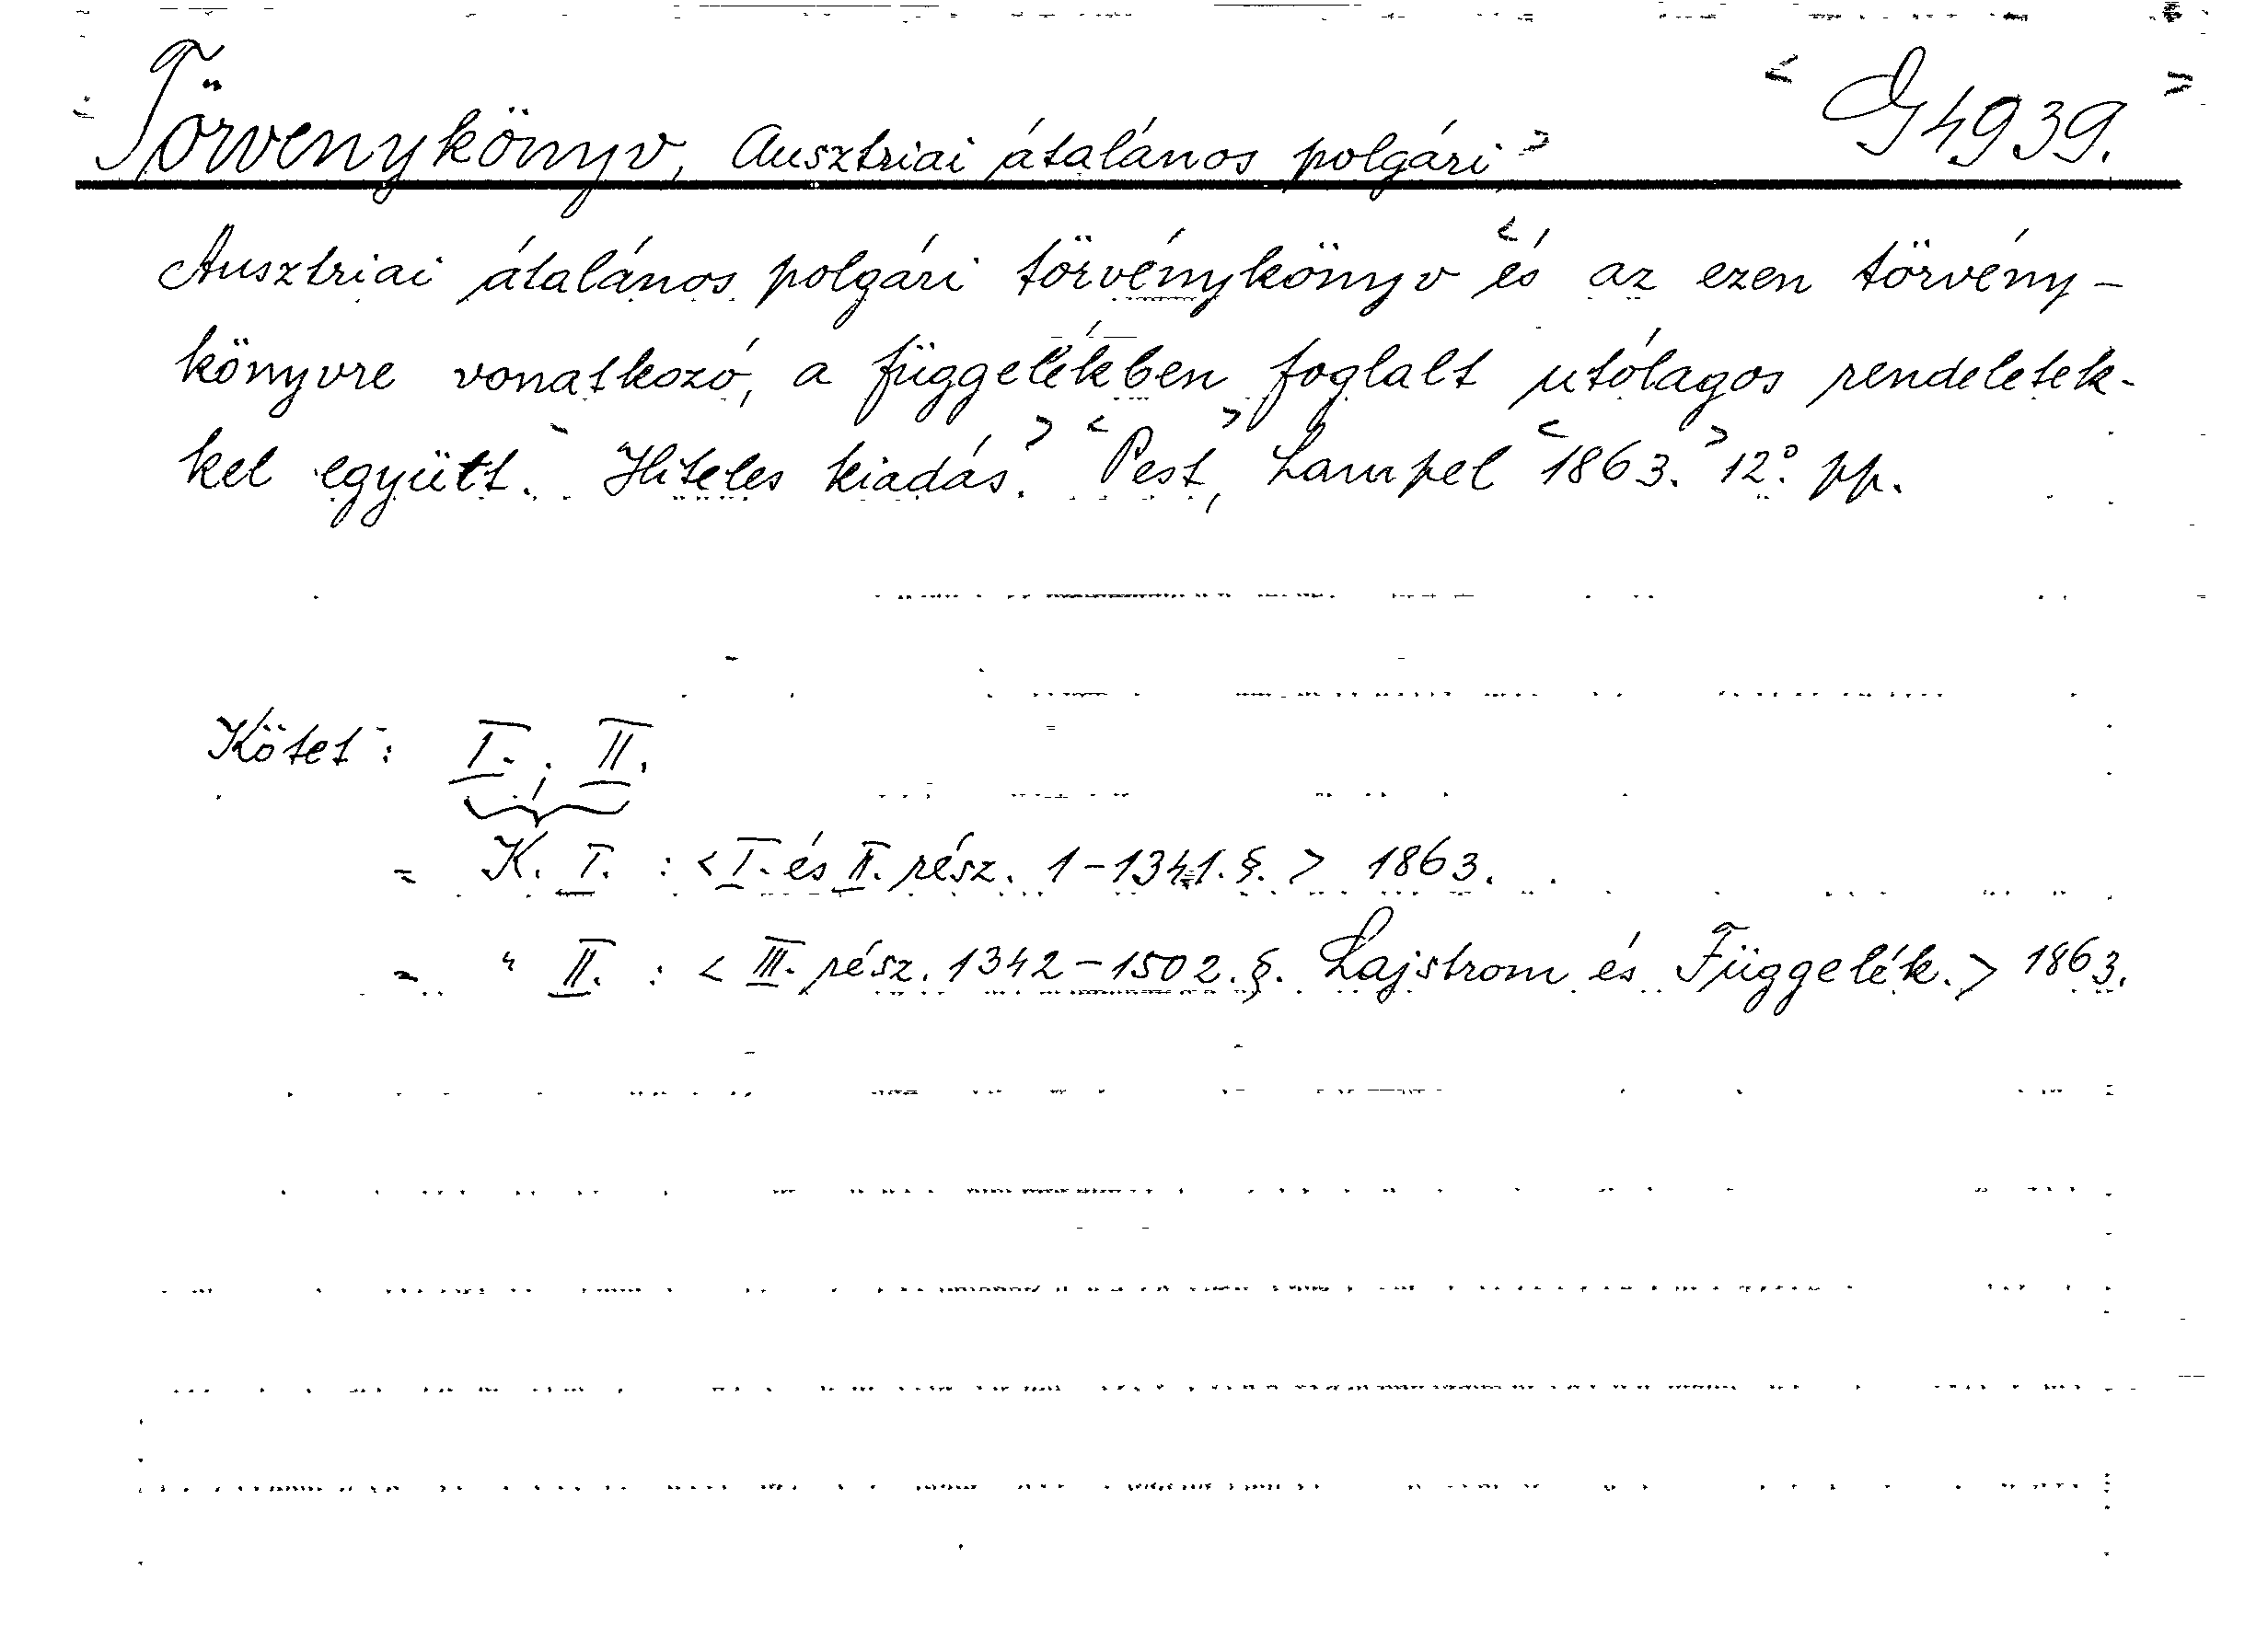 Törvenykönyv, Ausztriai átalános polgári > < G 4939. >
Ausztriai átalános polgári törvénykönyv < és az ezen törvény-
könyvre vonatkozó, a függelékben foglalt utólagos rendeletek-
kel együtt. Hiteles kiadás. > < Pest, > Lampel < 1863. > 12° pp.
Kötet: I. ; II.
= K. I. : < I. és II. rész. 1-1341. §. > 1863.
= " II. : < III. rész. 1342-1502. §. Lajstrom és Függelék. > 1863.